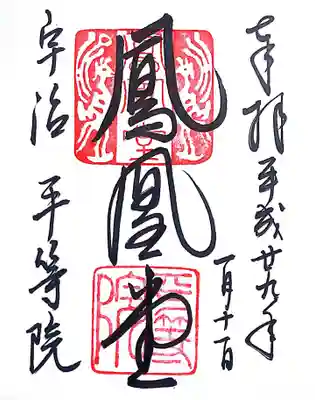 奉拝 平成廿九年
一月十一日
鳳凰堂
宇治 平等院